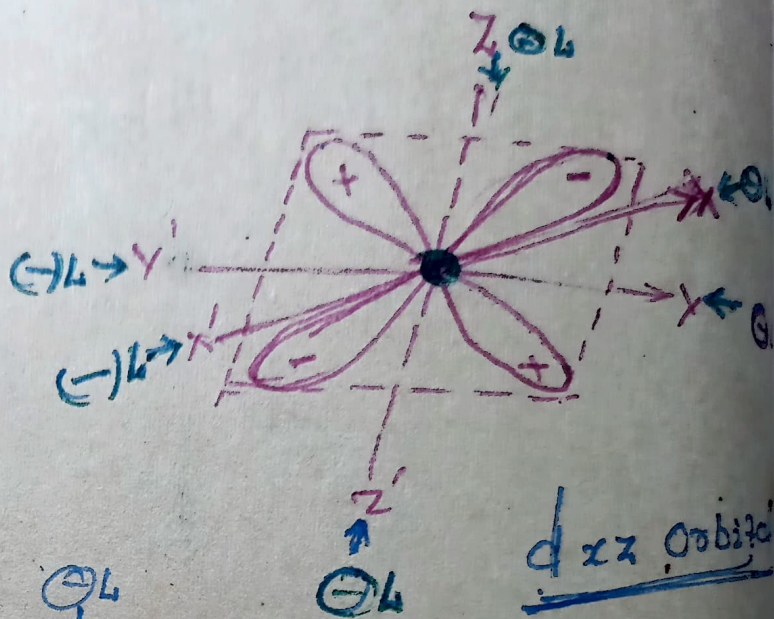 Z ⊖L
↓
+ -
X ← ⊖
(-)L → Y'
Y ←
(-)L → X'
- +
Z'
↑
⊖L ⊖L
d xz Orbita